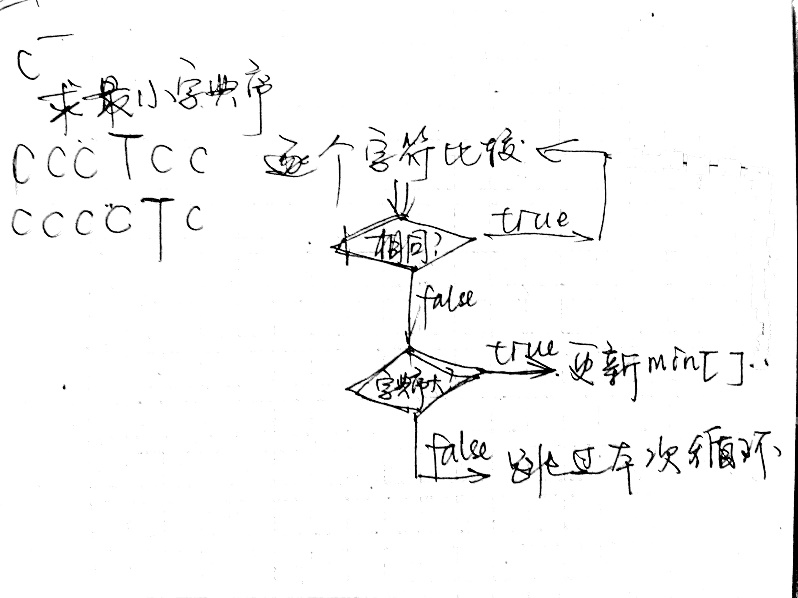 C
求最小字典序
CCCTCC 逐个字符比较
CCCCTC
相同? true
false
字典序大? true 更新min[]..
false 跳过本次循环